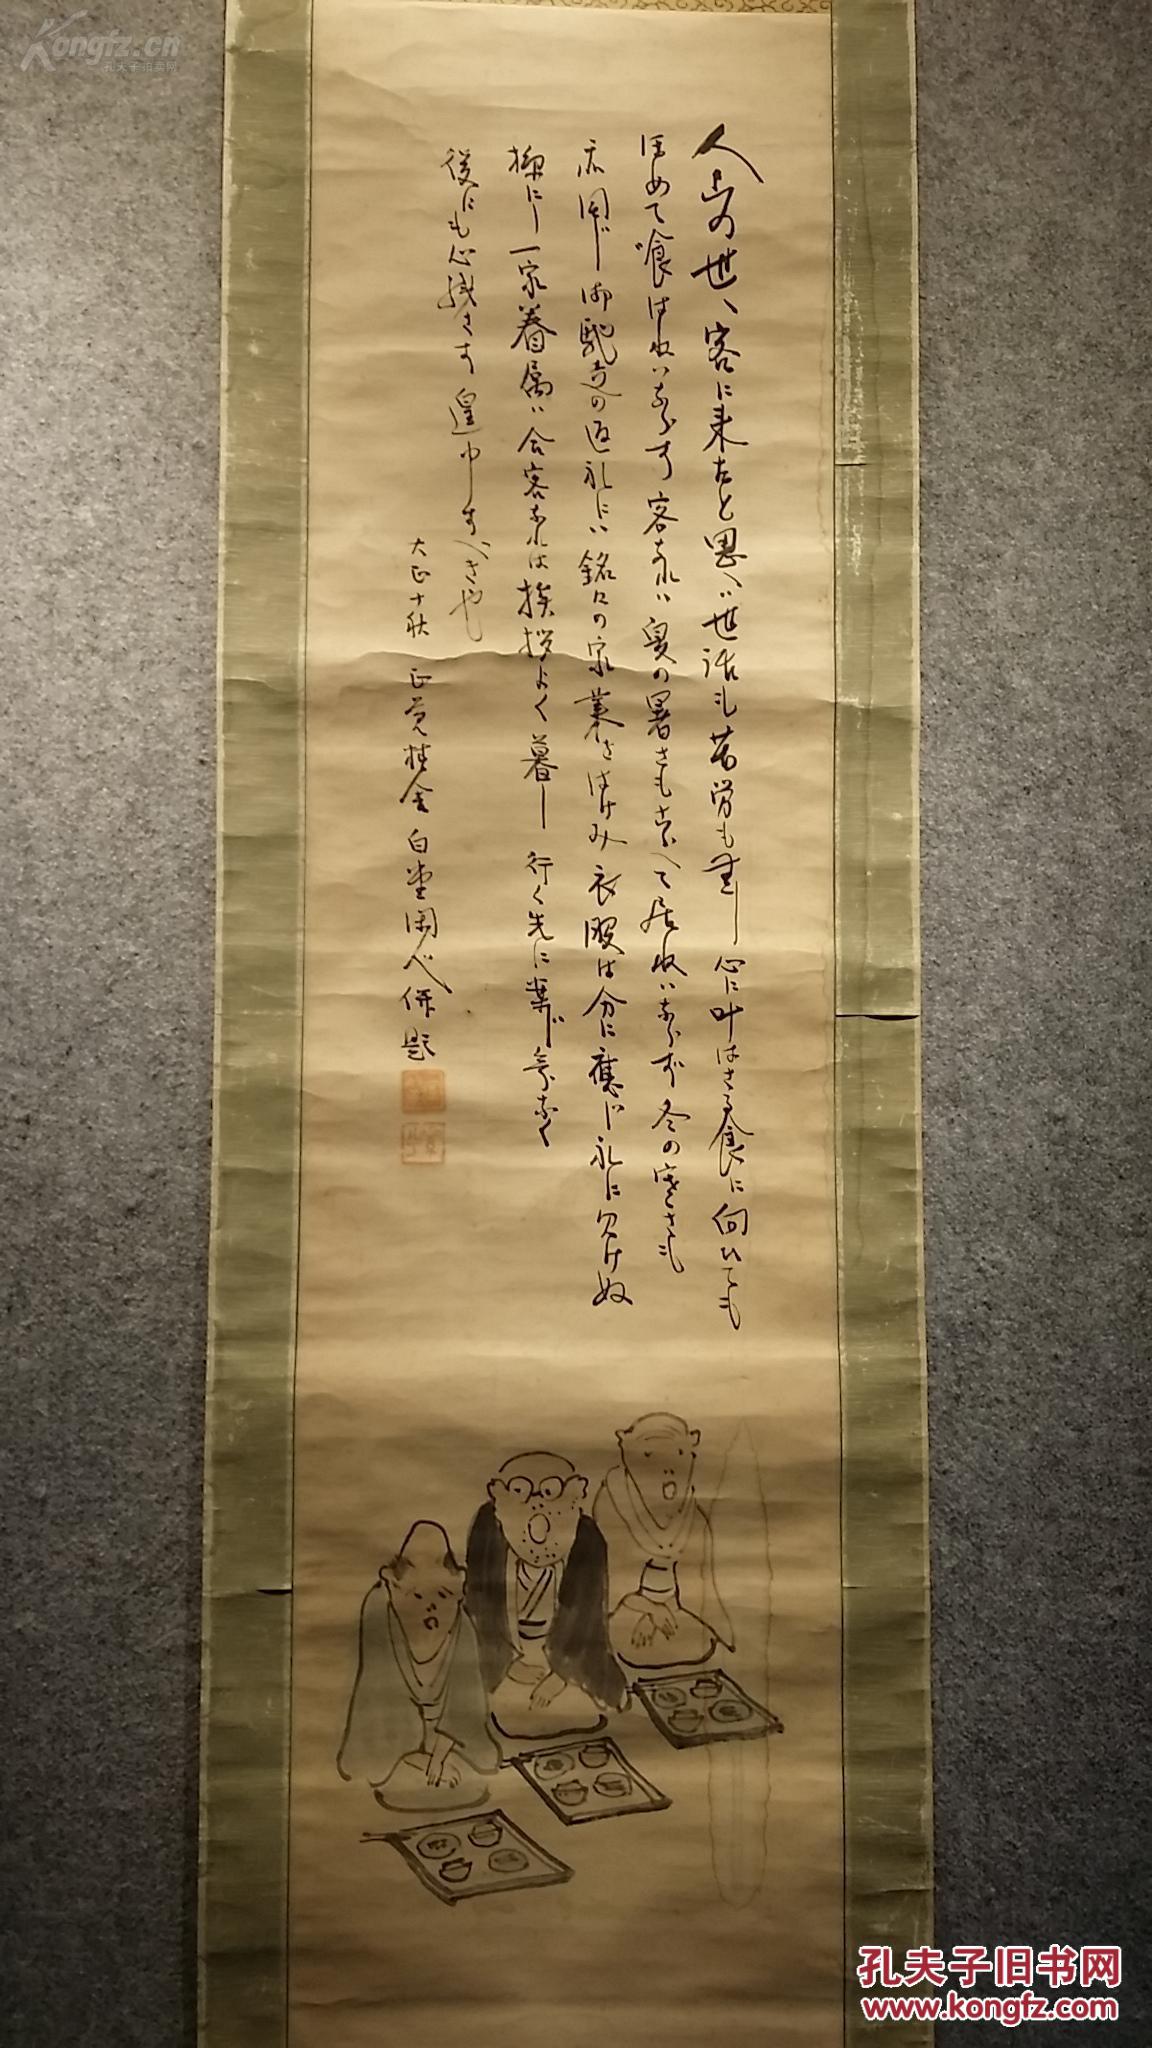 人此の世へ客に来たと思へハ世話も苦労も無し心に叶はさる食に向ひても
ほめて喰はねハならす客なれハ夏の暑さもこらへて居ねハならず冬の寒さも
亦同じ御馳走の返礼にハ銘々の家業をはげみ衣服は分に應じ礼に欠けぬ
様にし一家眷属ハ合客なれは挨拶よく暮し行く先に案じ気なく
後にも心残さす遑申すべきや
大正十秋 正覚 白堂閑人併題
Kongfz.cn
孔夫子拍卖网
孔夫子旧书网
www.kongfz.com